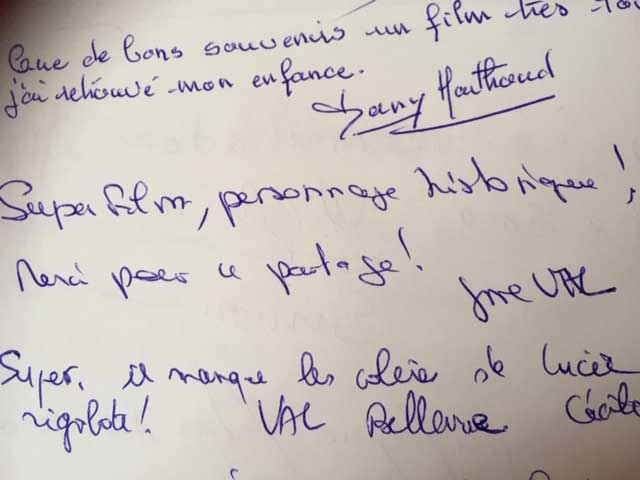 Que de bons souvenirs un film très
j'ai retrouvé mon enfance.
Dany
Super film, personnage historique!
Merci pour ce partage!
VAL
Super. il manque les de Lucie
rigolote! VAL Bellevue Cécile